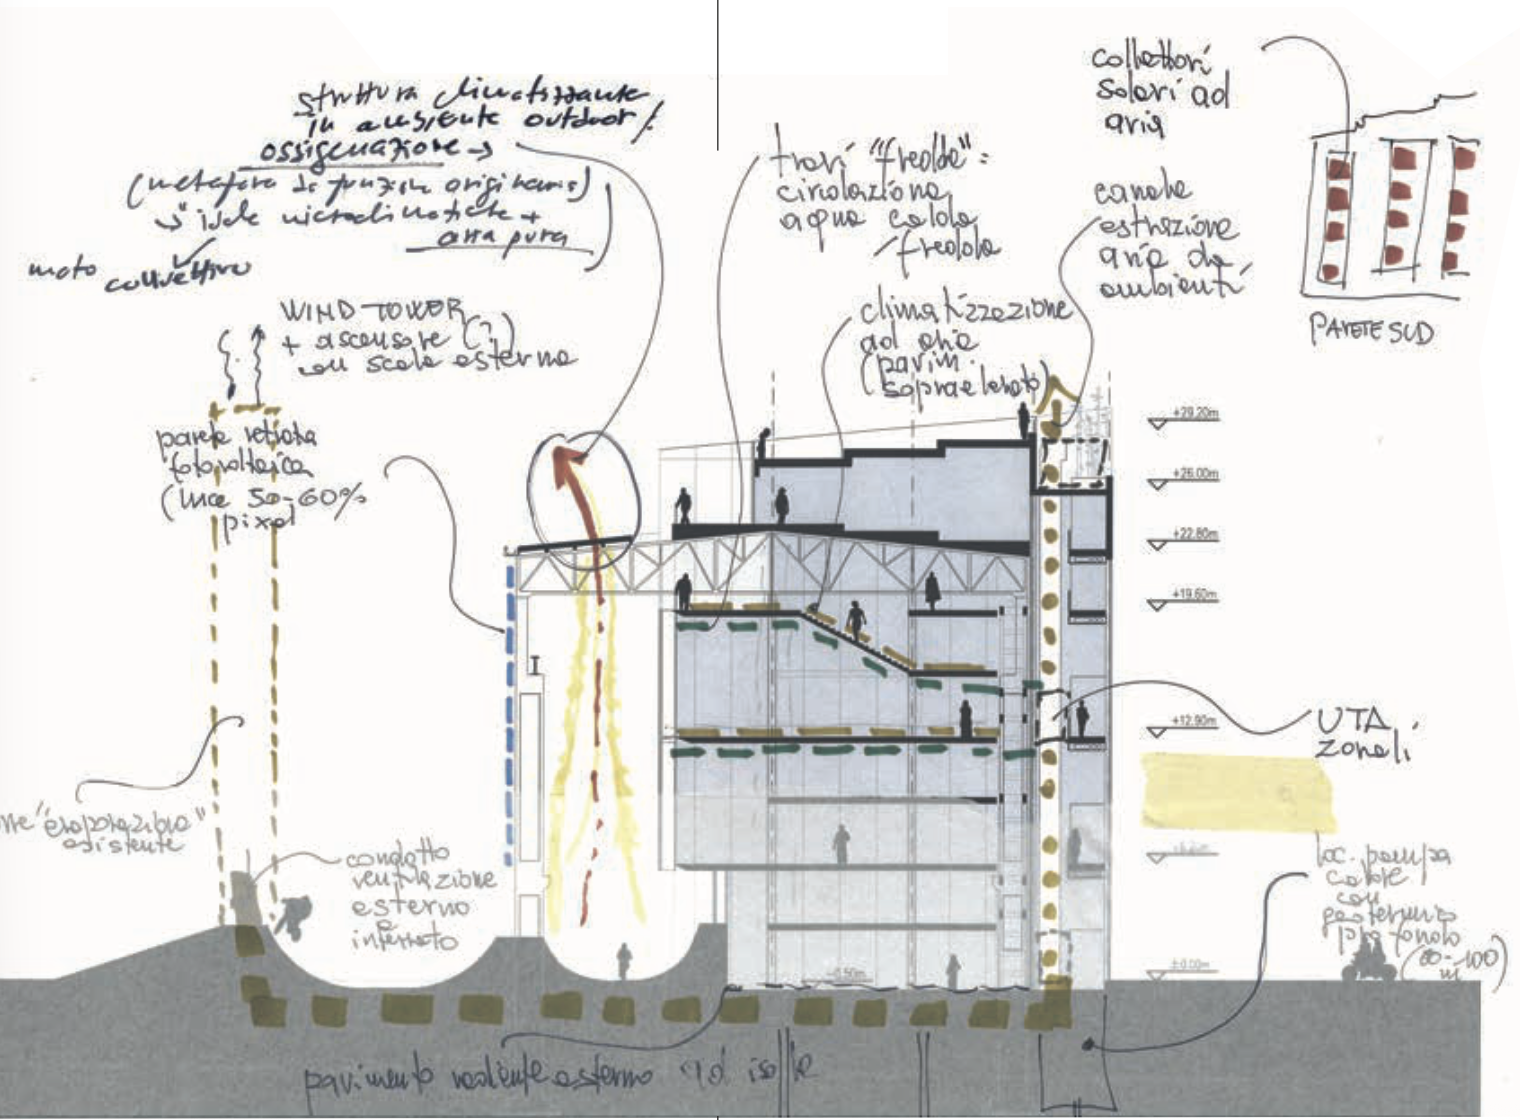 struttura climatizzante
in ambiente outdoor /
ossigenazione →
(metafora di funzioni originarie)
→ "isole microclimatiche +
aria pura
moto convettivo
WIND TOWER
+ ascensore (?)
con scala esterna
parete vetrata
fotovoltaica
(luce 50-60%
pixel
travi "fredde" =
circolazione
acqua calda
/fredda
climatizzazione
ad aria
(pavim.
sopraelevato)
collettori
solari ad
aria
canale
estrazione
aria da
ambienti
PARETE SUD
+29.20m
+26.00m
+22.80m
+19.60m
+12.90m
±0.00m
-0.50m
UTA
zonali
"evaporazione"
esistente
condotto
ventilazione
esterno
e
interrato
loc. pompa
calore
con
geotermico
profondo
(80-100)
m
pavimento radiante esterno ad isole